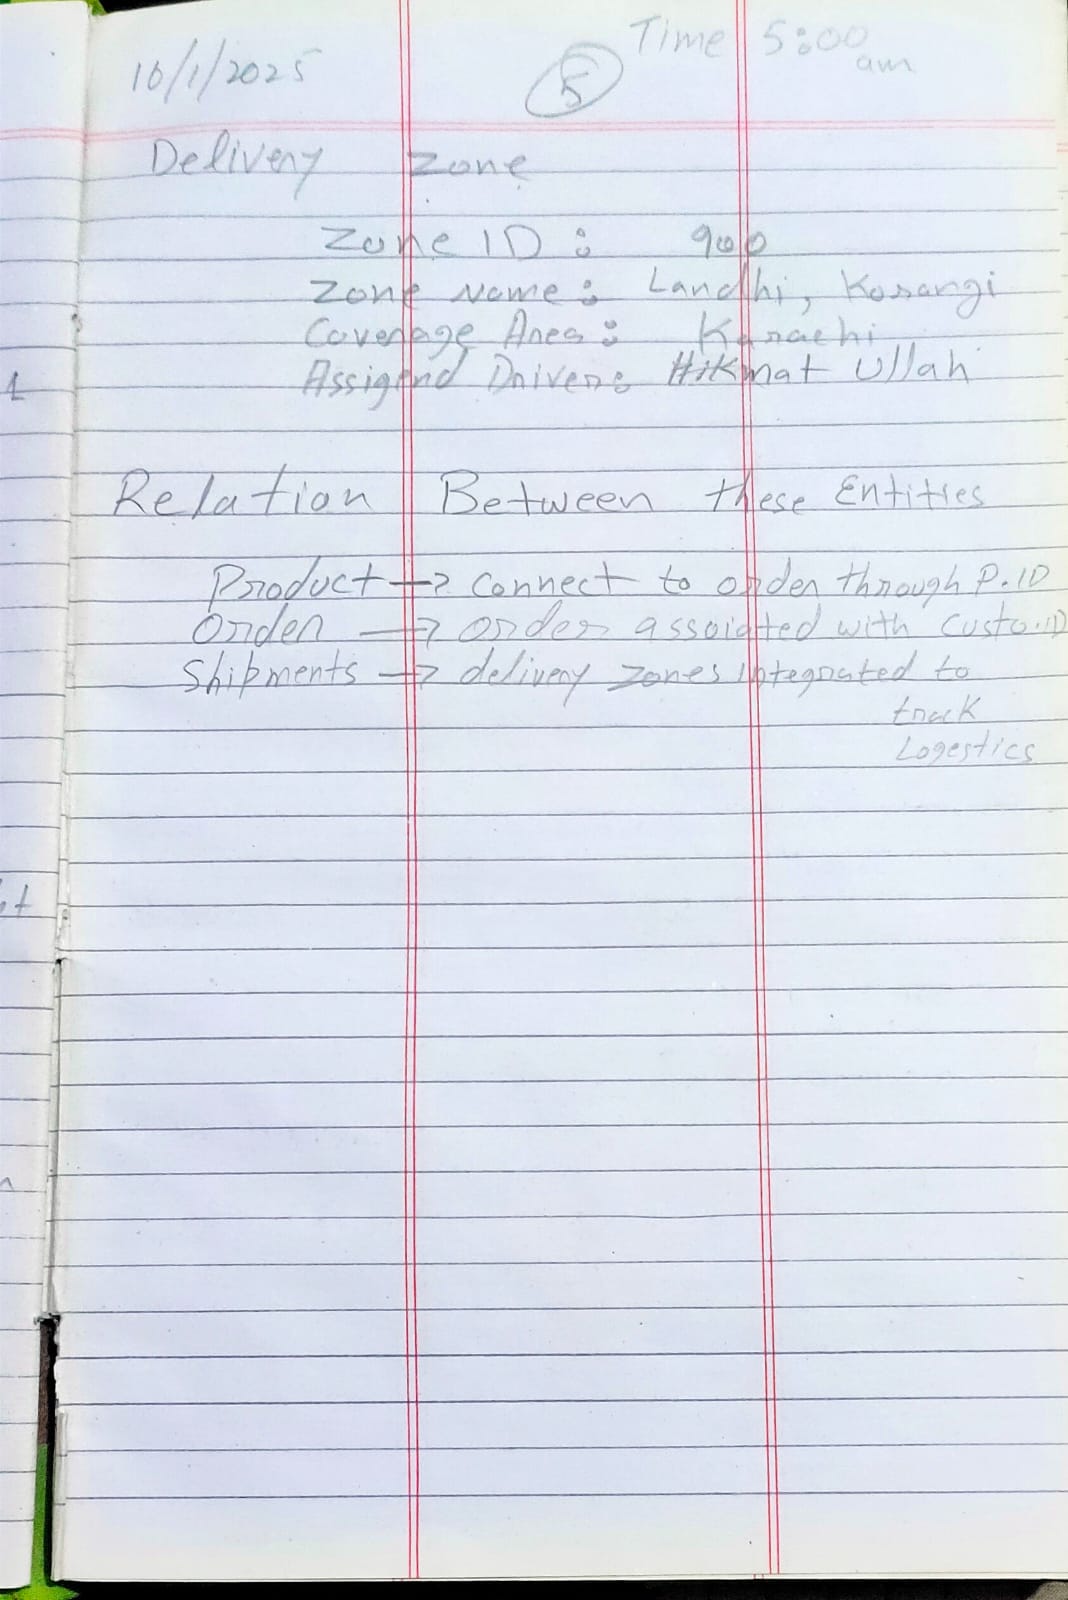 16/1/2025
5
Time 5:00 am
Delivery Zone
Zone ID : 900
Zone Name : Landhi, Korangi
Coverage Area : Karachi
Assigend Driver : Hikmat Ullah
Relation Between these Entities
Product → Connect to order through P.ID
Order → order assoiated with Custo.ID
Shipments → delivery zones integrated to
track
Logestics